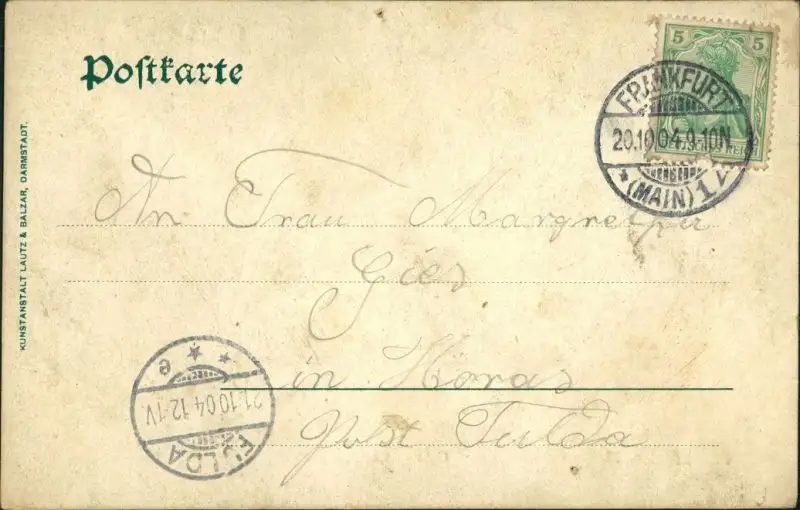 Postkarte
5 5
FRANKFURT
20.10.04.9-10N
* (MAIN) 1
REICH
KUNSTANSTALT LAUTZ & BALZAR, DARMSTADT.
An Frau Margrethe
Gies
in Horas
Post Fulda
FULDA
21.10.04 12-1V.
* * * e